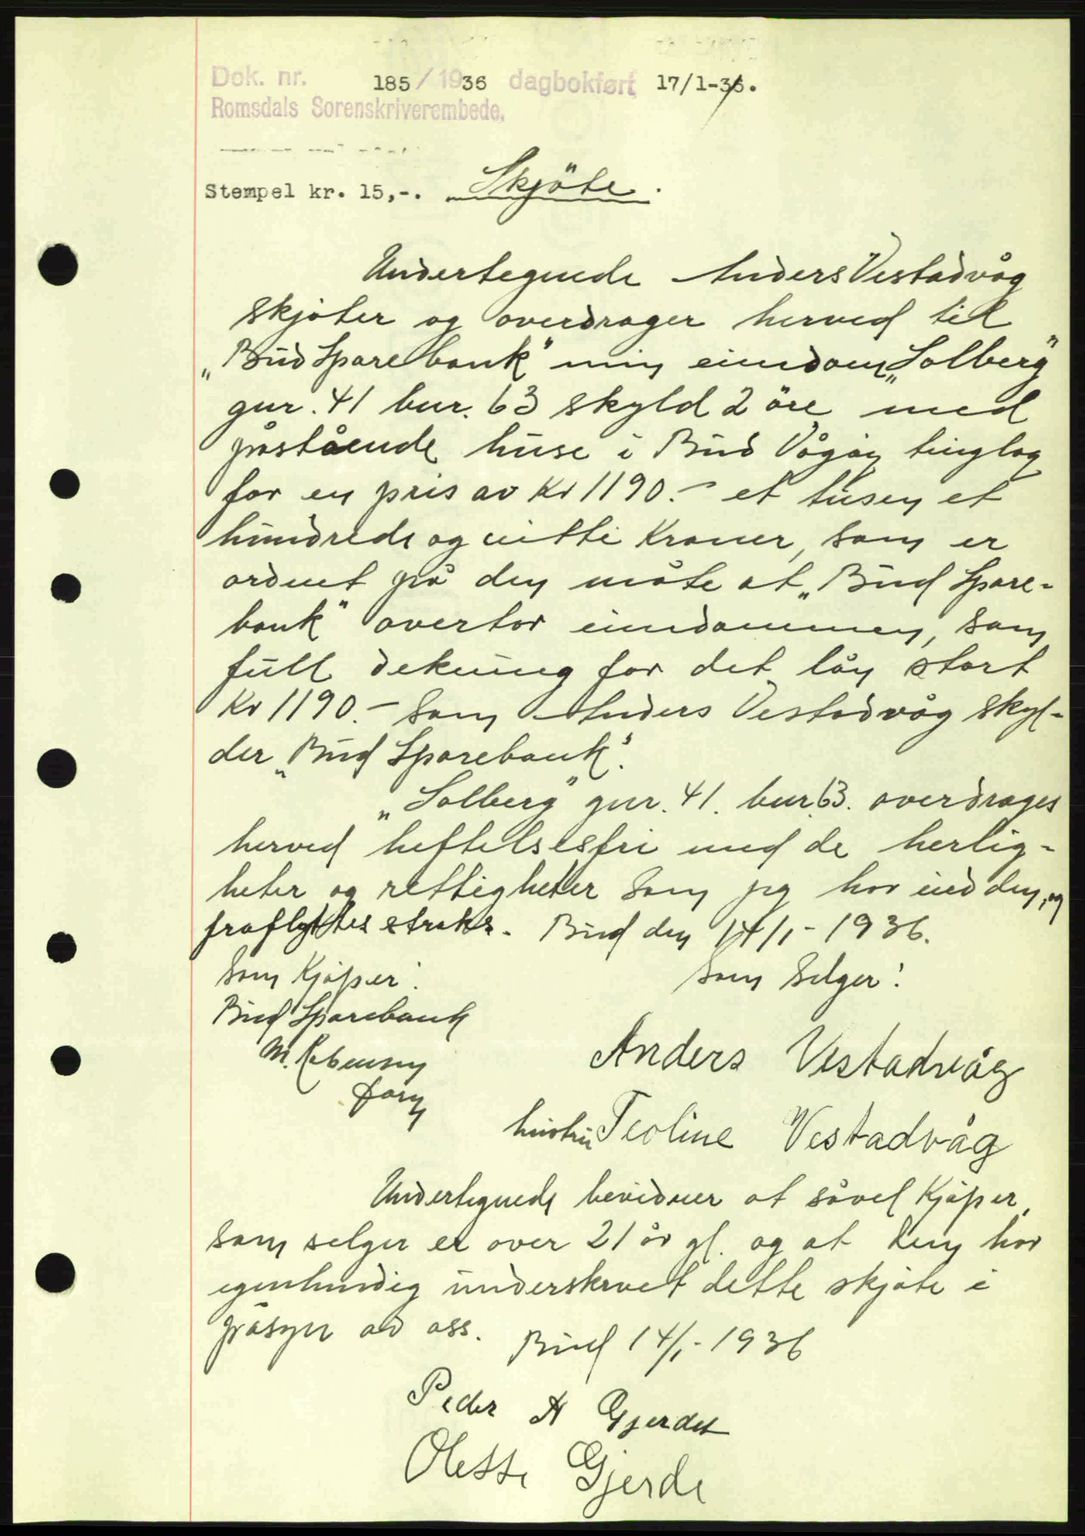 Dok. nr. 185/1936 dagbokført 17/1-36.
Romsdals Sorenskriverembede.
Stempel kr. 15,-. Skjöte.
Undertegnede Anders Vestadvåg
skjöter og overdrager herved til
„Bud Sparebank" min eiendom „Solberg"
gnr. 41 bnr. 63 skyld 2 öre med
påstående huse i Bud Vågöy tinglag
for en pris av Kr 1190.- et tusen et
hundrede og nitti Kroner, som er
ordnet på den måte at „Bud Spare-
bank" overtar eiendommen, som
full dekning for det lån stort
Kr 1190.- som Anders Vestadvåg skyl-
der „Bud Sparebank".
„Solberg" gnr. 41. bnr. 63. overdrages
herved heftelsesfri med de herlig-
heter og rettigheter som jeg har ind den, og
fraflyttes straks. Bud den 14/1-1936.
Som Kjöper: Som Selger:
Bud Sparebank
M.
form
Anders Vestadvåg
hustru Teoline Vestadvåg
Undertegnede bevidner at såvel Kjöper,
som selger er over 21 år gl. og at den har
egenhendig underskrevet dette skjöte i
påsyn av oss. Bud 14/1-1936
Peder A Gjerdet
Olette Gjerde